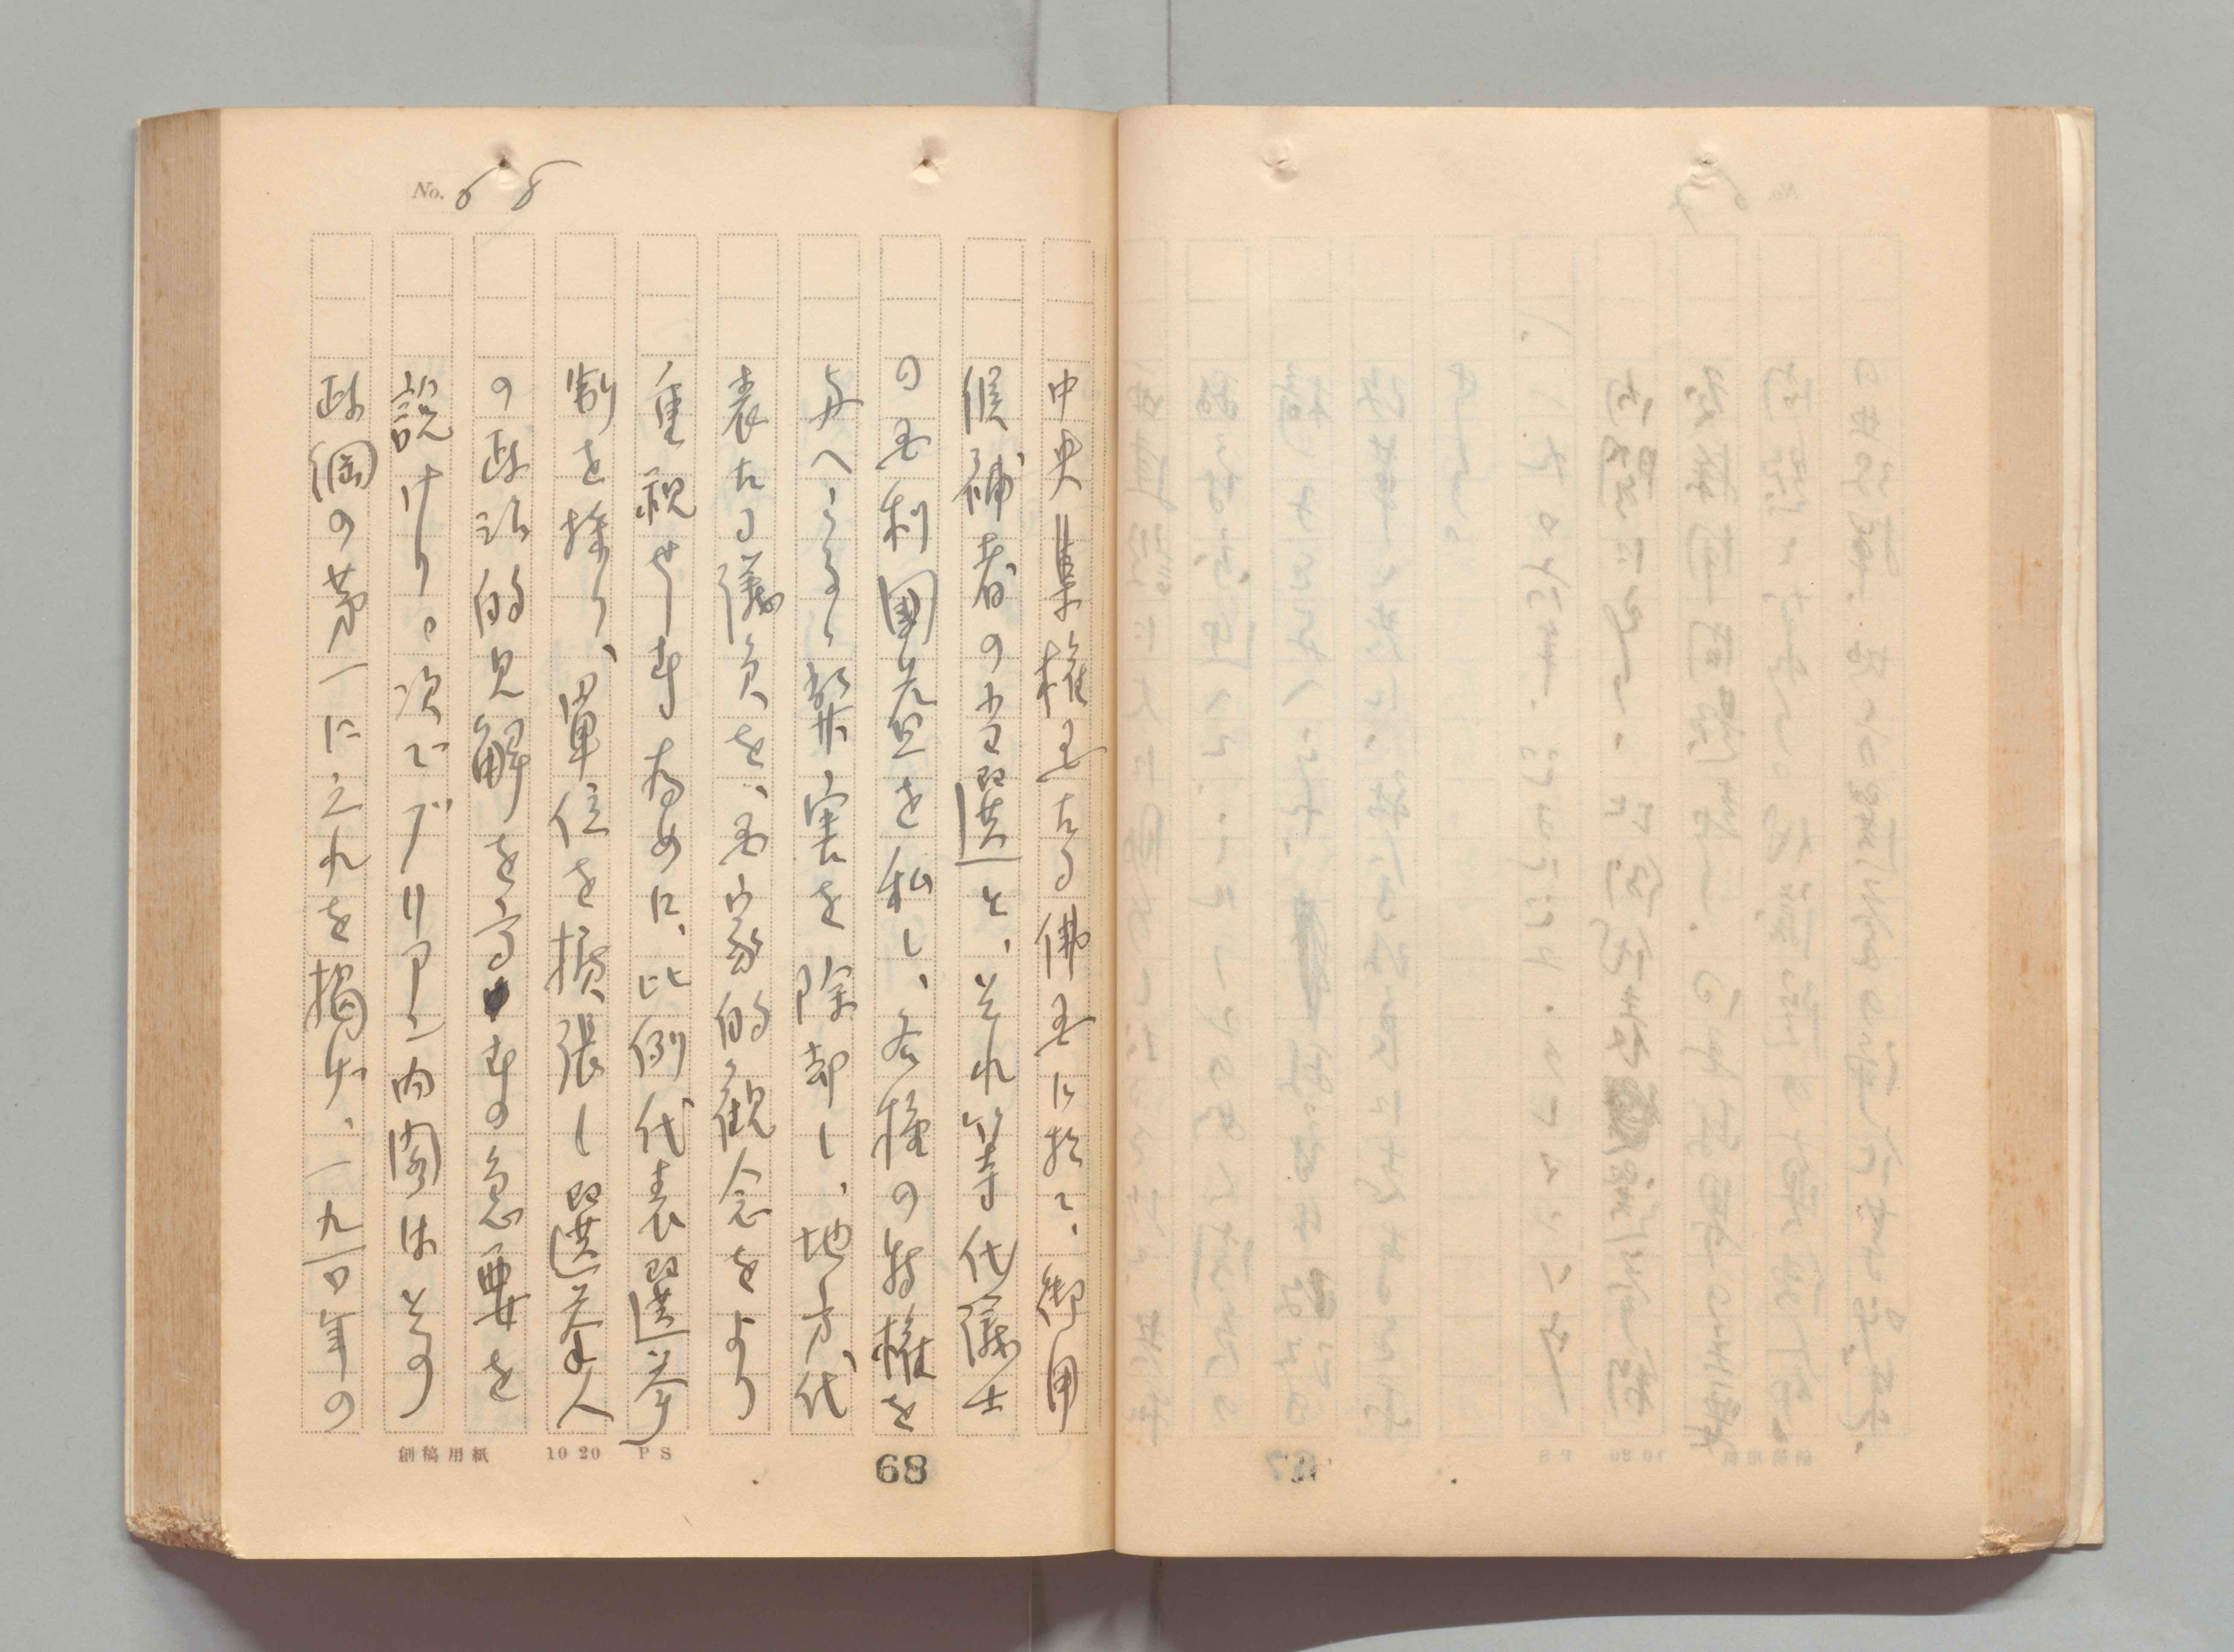 No. 68
中央集権国たる佛国に於て、御用
候補者の当選と、それ等代議士
の国利国益を私し、各種の特権を
与へらるゝ弊害を除却し、地方代
表たる議員を、国家的観念をより
重視せしむる為めに、比例代表選挙
制を採り、単位を拡張し選挙人
の政治的見解を高むるの急要を
説けり。次でブリアン内閣はその
政綱の第一に之れを掲げ、一九一〇年の
創稿用紙 10 20 P S
68